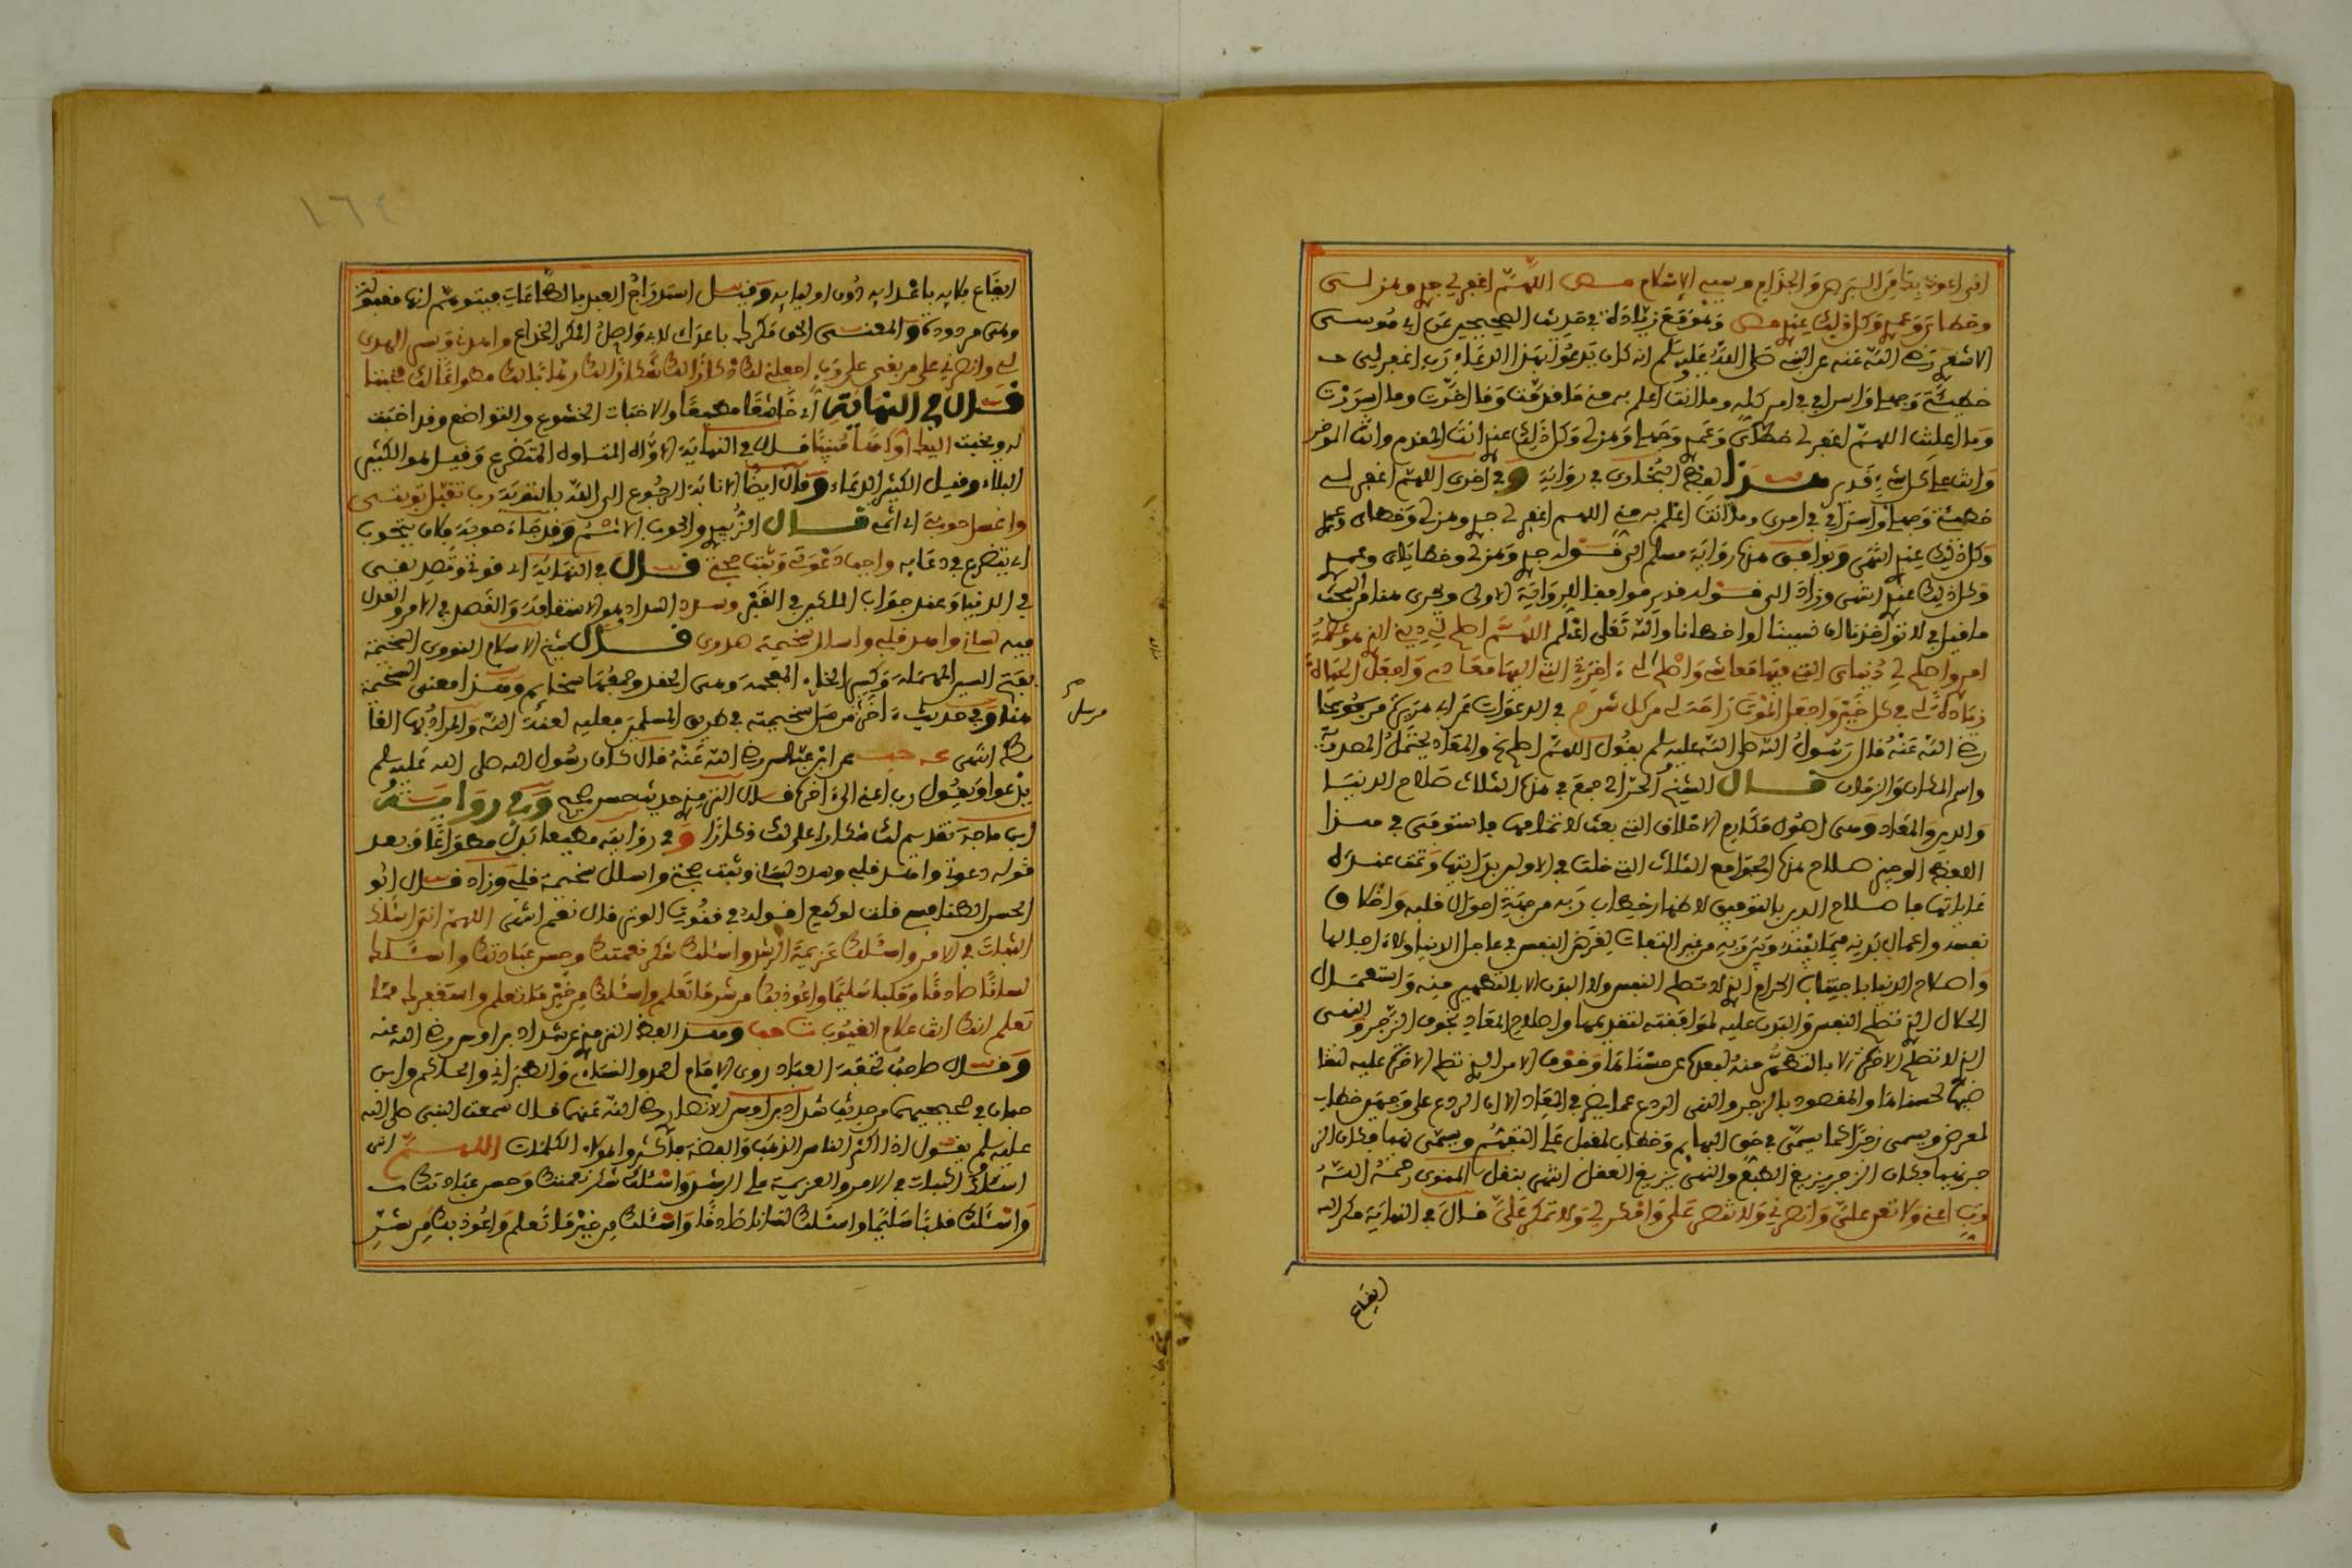 اني اعوذ بك من البرص والجذام وسيء الاسقام مص اللهم اغفر لي جدي وهزلي
وخطاي وعمدي وكل ذلك عندي مص ووقع زيادة في حديث الصحيحين عن ابي موسى
الاشعري رضي الله عنه عن النبي صلى الله عليه وسلم انه كان يدعو بهذا الدعاء رب اغفر لي
خطيئتي وجهلي واسرافي في امري كله وما انت اعلم به مني ما قدمت وما اخرت وما اسررت
وما اعلنت اللهم اغفر لي خطاي وعمدي وجهلي وهزلي وكل ذلك عندي انت المقدم وانت الموخر
وانت على كل شيء قدير هذا لفظ البخاري في رواية وفي اخرى اللهم اغفر لي
خطيئتي وجهلي واسرافي في امري وما انت اعلم به مني اللهم اغفر لي جدي وهزلي وخطاي وعمدي
وكل ذلك عندي انتهى ويوافق هذا رواية مسلم الى قوله جدي وهزلي وخطاياي وعمدي
وكل ذلك عندي انتهى وزاد الى قوله قدير موافقا للرواية الاولى ويجري هنا من البحث
ما قيل في لا تواخذنا ان نسينا او اخطانا والله تعلى اعلم اللهم اصلح لي ديني الذي هو عصمة
امري واصلح لي دنياي التي فيها معاشي واصلح لي ءاخرتي التي اليها معادي واجعل الحياة
زيادة لي في كل خير واجعل الموت راحة لي من كل شر م في الدعوات عن ابي هريرة مرفوعا
رضي الله عنه قال رسول الله صلى الله عليه وسلم يقول اللهم اصلح لي والمعاد يحتمل المصدرية
واسم المكان والزمان قال الشيخ الحرالي جمع في هذه الثلاث صلاح الدنيا
والدين والمعاد وهي اصول مكارم الاخلاق التي بعث لاتمامها فاستوفى في هذا
اللفظ الوجيز صلاح هذه الجوامع الثلاث التي خلت في الاولين بداياتها وتمت عنده
غاياتها فاصلاح الدين بالتوفيق لاظهار خطاب ربه من جهة احوال قلبه واخلاق
نفسه واعمال بدنه فيما بينه وبين ربه من غير التفات لغرض النفس في عاجل الدنيا ولا ءاجلها
واصلاح الدنيا باجتناب الحرام الذي لا تصلح النفس والبدن الا بالتطهير منه واستعمال
الحلال الذي تصلح النفس والبدن عليه لموافقته لتقويمها واصلاح المعاد بخوف الزجر والنهي
الذي لا تصلح الاخرة الا بالتطهر منه لبعده عن حسناها وخوف الامر الذي تصلح الاخرة عليه لتقا
ضيها لحسناها والمقصود بالزجر والنهي الردع عما يضر في المعاد الا ان الردع على وجهين خطاب
لمعرض ويسمى زجرا كما يسمى في حق البهايم وخطاب لمقبل على التفهم ويسمى نهيا فكان الز
جر نهيا فكان الزجر يزيغ الطبع والنهي يزيغ العقل انتهى بنقل المنوي رحمه الله
رب اعني ولا تعن علي وانصرني ولا تنصر علي وامكر لي ولا تمكر علي قال في النهاية مكر الله
ايقاع
١٦٤
ايقاع بلايه باعدايه دون اوليايه وقيل استدراج العبد بالطاعات فيتوهم انها مقبولة
وهي مردودة والمعنى الحق مكرك باعداي لا بي واصل المكر الخداع واهدني ويسر الهدى
لي وانصرني على من بغى علي رب اجعلني لك ذكارا لك شكارا لك رهابا لك مطواعا لك مخبتا
قال في النهاية اي خاشعا مطيعا والاخبات الخشوع والتواضع وقد اخبت
له ويخبت اليك اواها منيبا قال في النهاية الاواه المتاوه المتضرع وقيل هو الكثير
البكاء وقيل الكثير الدعاء وقال ايضا الانابة الرجوع الى الله بالتوبة رب تقبل توبتي
واغسل حوبتي اي اثمي قال الزبيدي والحوب الاثم وقد جاء حوبة فلان يتحوب
اي يتضرع في دعايه واجب دعوتي وثبت حجتي قال في النهاية اي قولي وتصديقي
في الدنيا وعند جواب الملكين في القبر وسدد السداد هو الاستقامة والقصد في الامر والعدل
فيه لساني واهد قلبي واسلل سخيمة صدري قال شيخ الاسلام النووي السخيمة
بفتح السين المهملة وكسر الخاء المعجمة وهي الحقد وجمعها سخايم وهذا معنى السخيمة
هنا وفي حديث ءاخر من سل سخيمته في طريق المسلمين فعليه لعنة الله والمراد بها الغا
يط انتهى عه حب عن ابن عباس رضي الله عنه قال كان رسول الله صلى الله عليه وسلم
يدعوا ويقول رب اعني الى ءاخره قال الترمذي حديث حسن صحيح وفي رواية
ابن ماجة تقديم لك شكارا على لك ذكارا وفي رواية مطيعا بدل مطواعا وبعد
قوله دعوتي واهد قلبي وسدد لساني وثبت حجتي واسلل سخيمة قلبي وزاد قال ابو
الحسن الطنافسي قلت لوكيع اقوله في قنوت الوتر قال نعم انتهى اللهم اني اسئلك
الثبات في الامر واسئلك عزيمة الرشد واسئلك شكر نعمتك وحسن عبادتك واسئلك
لسانا صادقا وقلبا سليما واعوذ بك من شر ما تعلم واسئلك من خير ما تعلم واستغفرك مما
تعلم انك انت علام الغيوب ت حب وهذا لفظ الترمذي عن شداد بن اوس رضي الله عنه
وقال صاحب تحفة العباد روى الامام احمد والنساي والطبراني والحاكم وابن
حبان في صحيحيهما من حديث شداد بن اوس الانصاري رضي الله عنهما قال سمعت النبي صلى الله
عليه وسلم يقول اذا اكتنز الناس الذهب والفضة فاكثروا هؤلاء الكلمات اللهم اني
اسئلك الثبات في الامر والعزيمة على الرشد واسئلك شكر نعمتك وحسن عبادتك
واسئلك قلبا سليما واسئلك لسانا صادقا واسئلك من خير ما تعلم واعوذ بك من شر